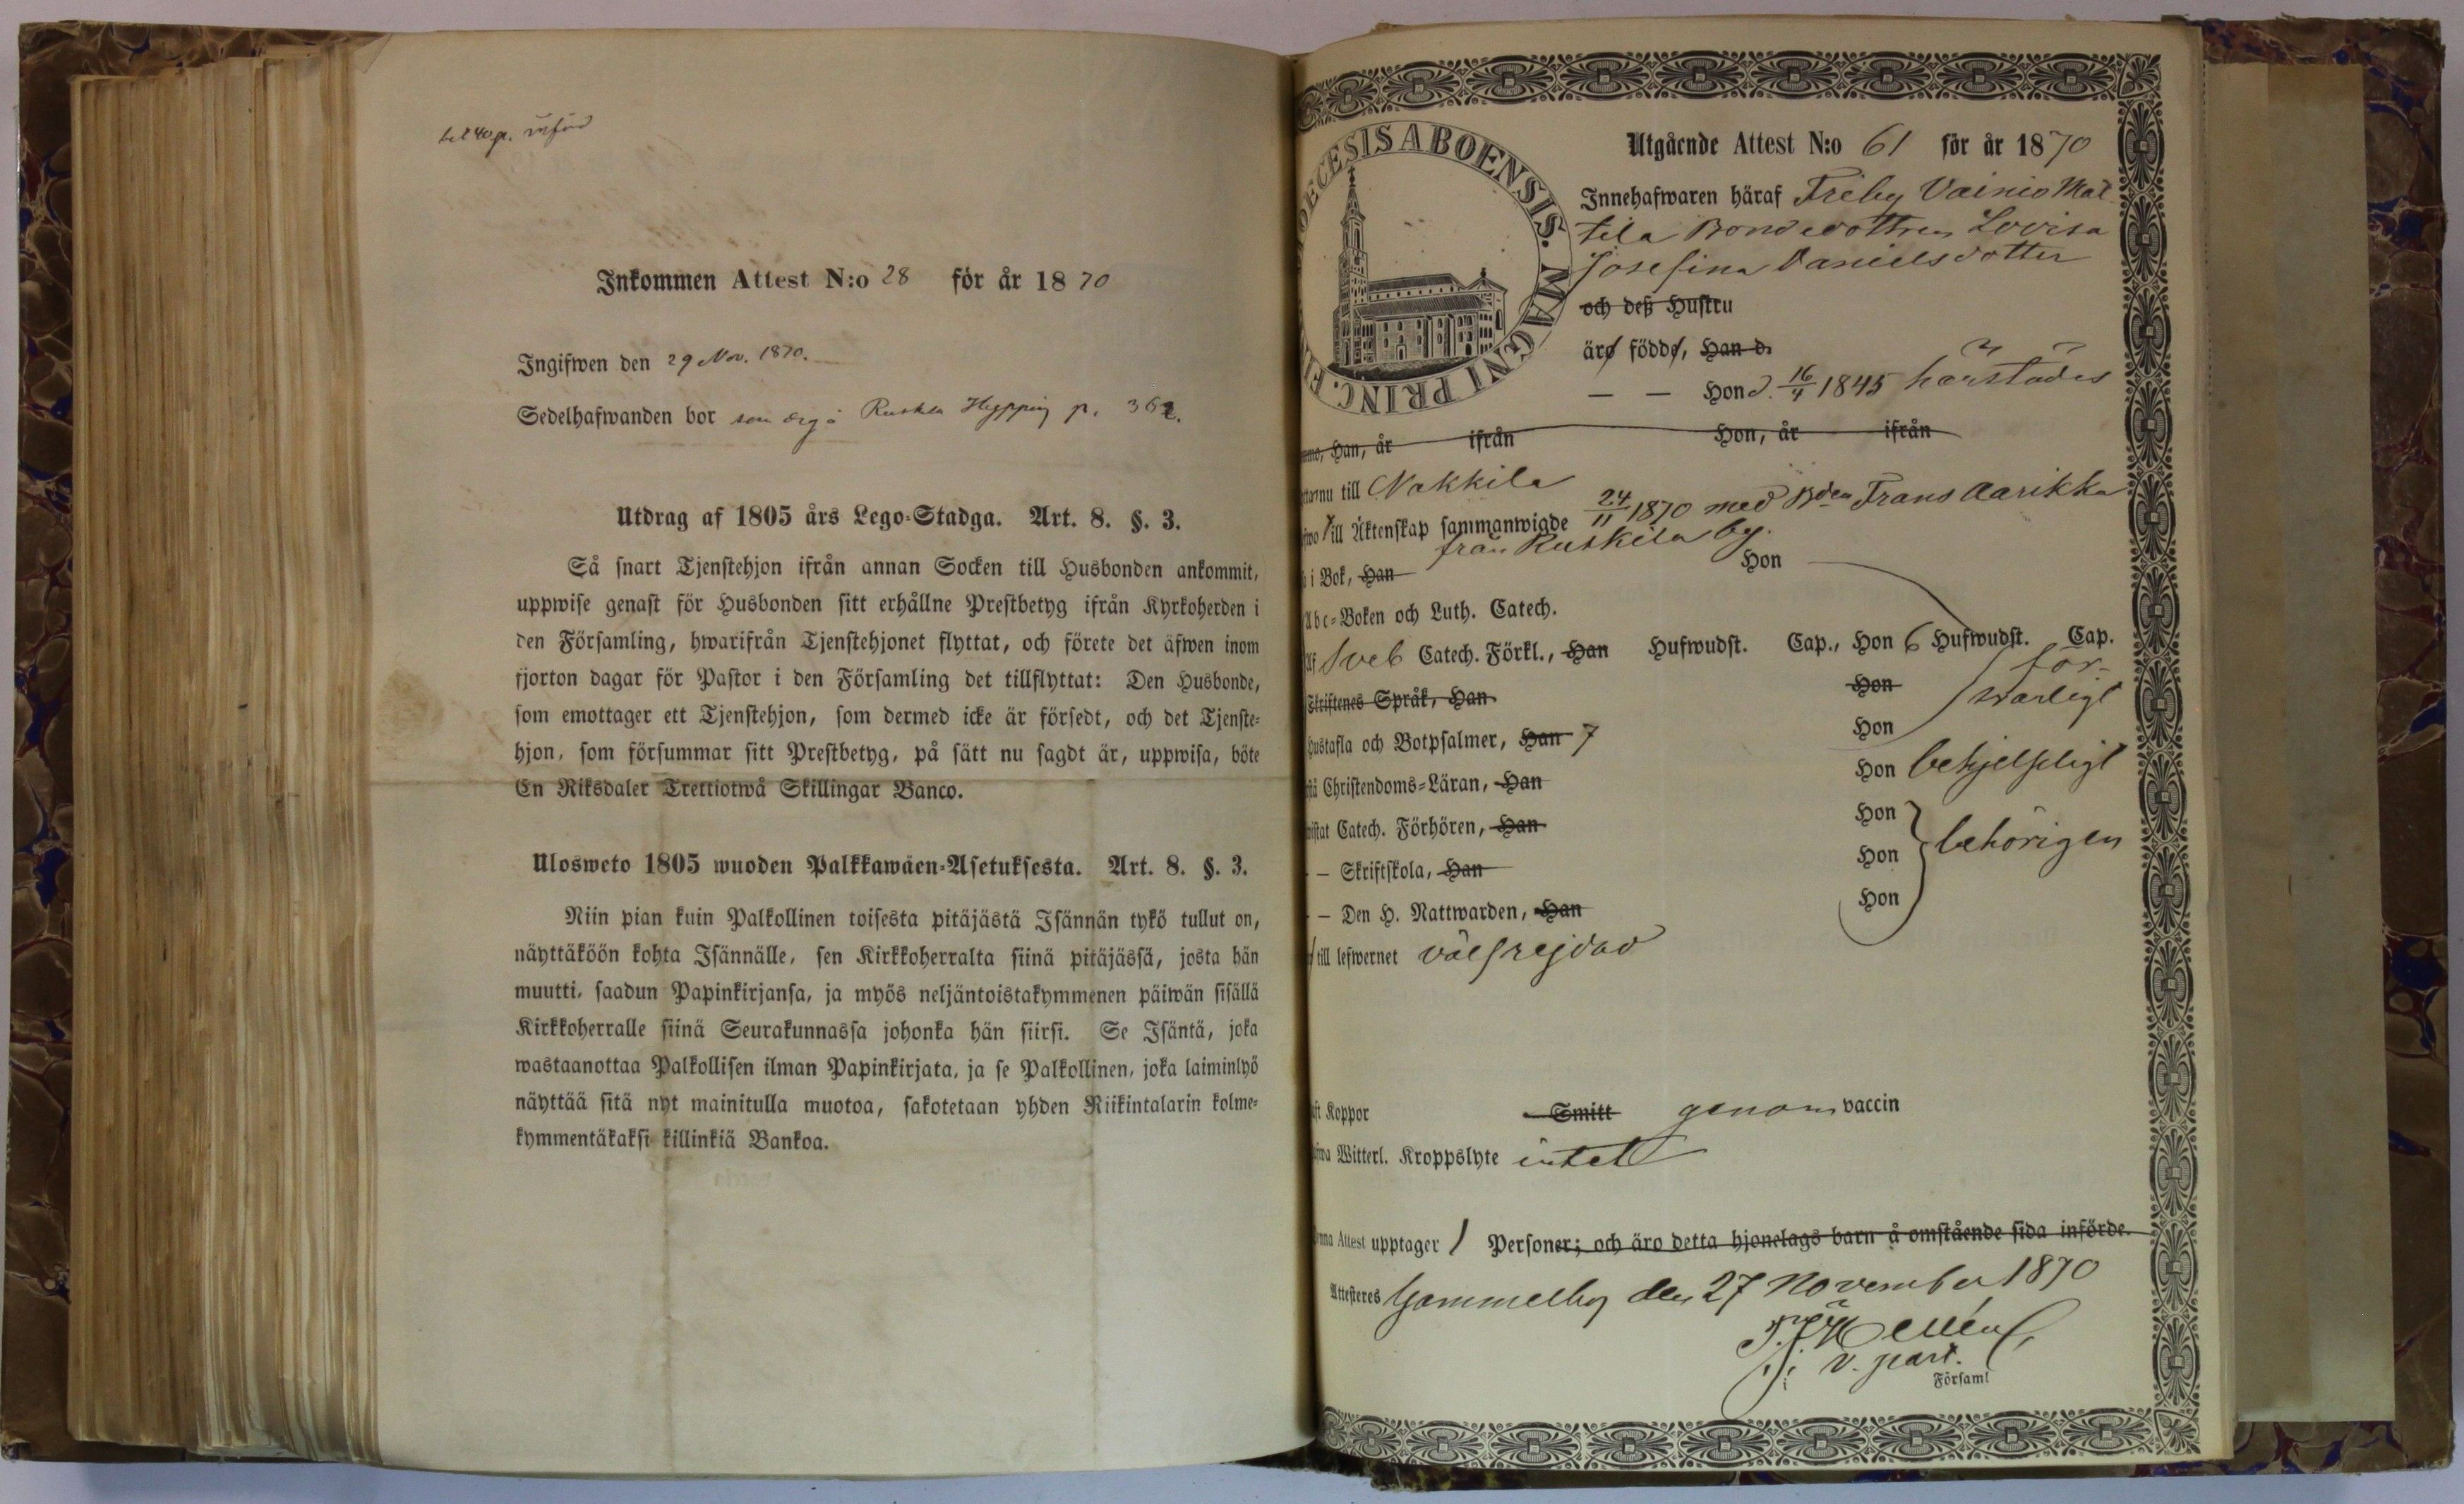 bet 40 p. införd
Inkommen Attest N:o 28 för år 1870
Ingifwen den 29 Nov. 1870.
Sedelhafwanden bor som å Ruskila Hyppi p. 362.
Utdrag af 1805 års Lego-Stadga. Art. 8. §. 3.
Så snart Tjenstehjon ifrån annan Socken till Husbonden ankommit,
uppwise genast för Husbonden sitt erhållne Prestbetyg ifrån Kyrkoherden i
den Församling, hwarifrån Tjenstehjonet flyttat, och förete det äfwen inom
fjorton dagar för Pastor i den Församling det tillflyttat: Den Husbonde,
som emottager ett Tjenstehjon, som dermed icke är försedt, och det Tjenste-
hjon, som försummar sitt Prestbetyg, på sätt nu sagdt är, uppwisa, böte
En Riksdaler Trettiotwå Skillingar Banco.
Ulosweto 1805 wuoden Palkkawäen-Asetuksesta. Art. 8. §. 3.
Niin pian kuin Palkollinen toisesta pitäjästä Isännän tykö tullut on,
näyttäköön kohta Isännälle, sen Kirkkoherralta siinä pitäjässä, josta hän
muutti, saadun Papinkirjansa, ja myös neljäntoistakymmenen päiwän sisällä
Kirkkoherralle siinä Seurakunnassa johonka hän siirsi. Se Isäntä, joka
wastaanottaa Palkollisen ilman Papinkirjata, ja se Palkollinen, joka laiminlyö
näyttää sitä nyt mainitulla muotoa, sakotetaan yhden Riikintalarin kolme-
kymmentäkaksi killinkiä Bankoa.
OECESIS ABOENSIS. MAGNI PRINC. FI
Utgående Attest N:o 61 för år 1870
Innehafwaren häraf Friby Vainio Mat
tila Bondedottren Lovisa
Josefina Danielsdotter
och deß Hustru
äro födde, Han d.
— — Hon d. 16/4 1845 härstädes
Han, år ifrån Hon, år ifrån
nu till Nakkila
till Äktenskap sammanwigde 24/11 1870 med Bden Frans Aarikka
från Ruskila by.
i Bok, Han Hon
Abc-Boken och Luth. Catech.
Af Sveb Catech. Förkl., Han Hufwudst. Cap., Hon 6 Hufwudst. Cap.
för-
svarligt
Skriftenes Språk, Han Hon
Hustafla och Botpsalmer, Han 7 Hon
Christendoms-Läran, Han Hon behjelpligt
Catech. Förhören, Han Hon
— Skriftskola, Han Hon behörigen
— Den H. Nattwarden, Han Hon
till lefwernet välfrejdad
Koppor Smitt genom vaccin
Witterl. Kroppslyte intet
Attest upptager 1 Personer; och äro detta hjonelags barn å omstående sida införde.
Attesteres Gammelby den 27 November 1870
v. past.
Församl